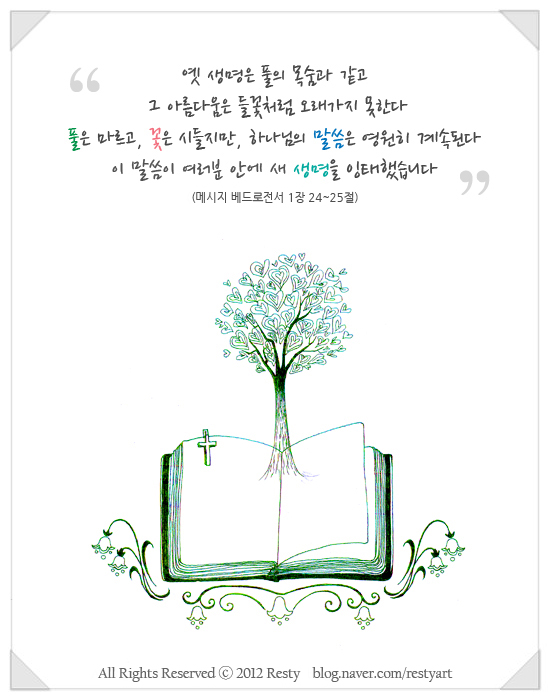 “
옛 생명은 풀의 목숨과 같고
그 아름다움은 들꽃처럼 오래가지 못한다
풀은 마르고, 꽃은 시들지만, 하나님의 말씀은 영원히 계속된다
이 말씀이 여러분 안에 새 생명을 잉태했습니다
”
(메시지 베드로전서 1장 24~25절)
All Rights Reserved ⓒ 2012 Resty blog.naver.com/restyart